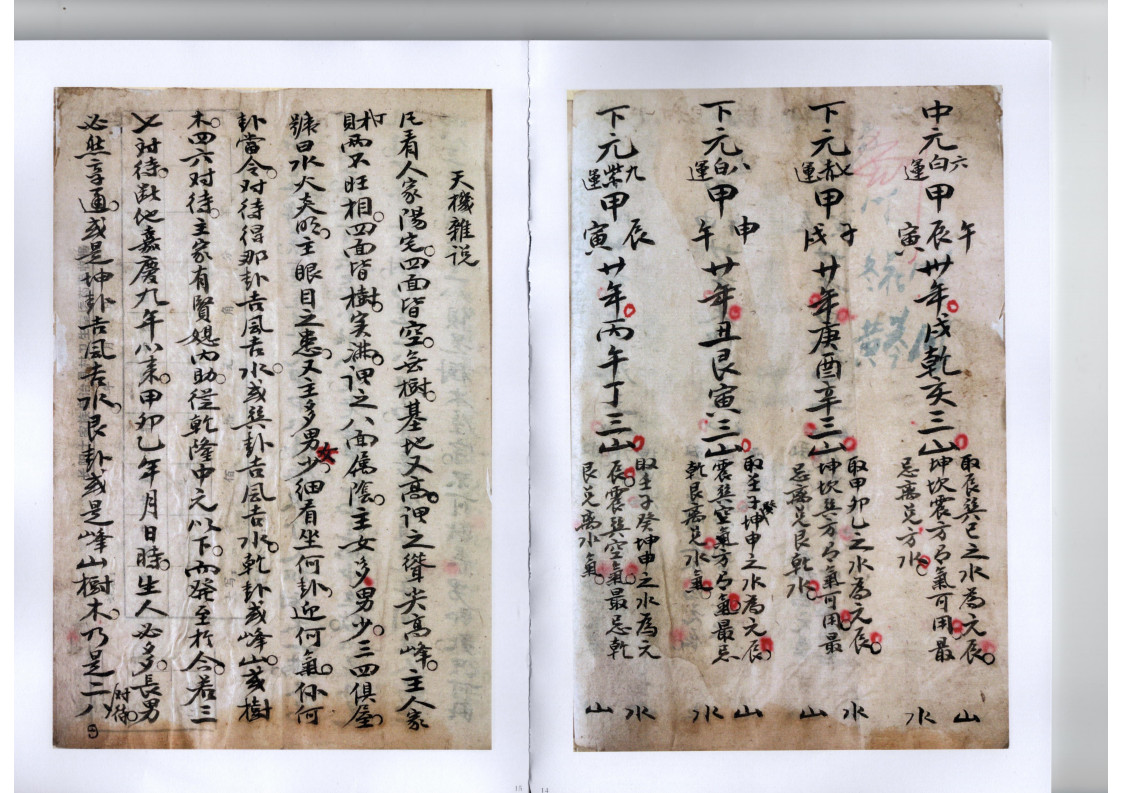 中元六白運甲辰午寅卅年戌乾亥三山
取辰巽巳之水為元辰
坤坎震方有氣可用最
忌离兑方水
山水
下元七赤運甲子戌廿年庚酉辛三山
取甲卯乙之水為元辰
坤坎巽方有氣可用最
忌离兑艮乾水
水山
下元八白運甲申午廿年丑艮寅三山
取壬子癸坤申之水為元辰
震巽空氣方有氣最忌
乾艮离兑水氣
山水
下元九紫運甲辰寅廿年丙午丁三山
取壬子癸坤申之水為元
辰震巽空氣最忌乾
艮兑离水氣
水山
天機雜説
凡看人家陽宅四面皆空無樹基地又高謂之聳尖高峰主人家
村財两不旺相四面皆樹实满謂之八面属陰主女多男少三四俱屋
號曰水火夫明主眼目之患又主多男少女細看坐何卦迎何氣仆何
卦當令对待得那卦吉風吉水或巽卦吉風吉水乾卦或峰山或樹
木四六对待主家有賢媳内助從乾隆申元以下而發至於今若三
七对待此他嘉慶九年以来甲卯乙年月日時生人必多長男
必然亨通或是坤卦吉風吉水艮卦或是峰山樹木乃是二八对待
9
13
14